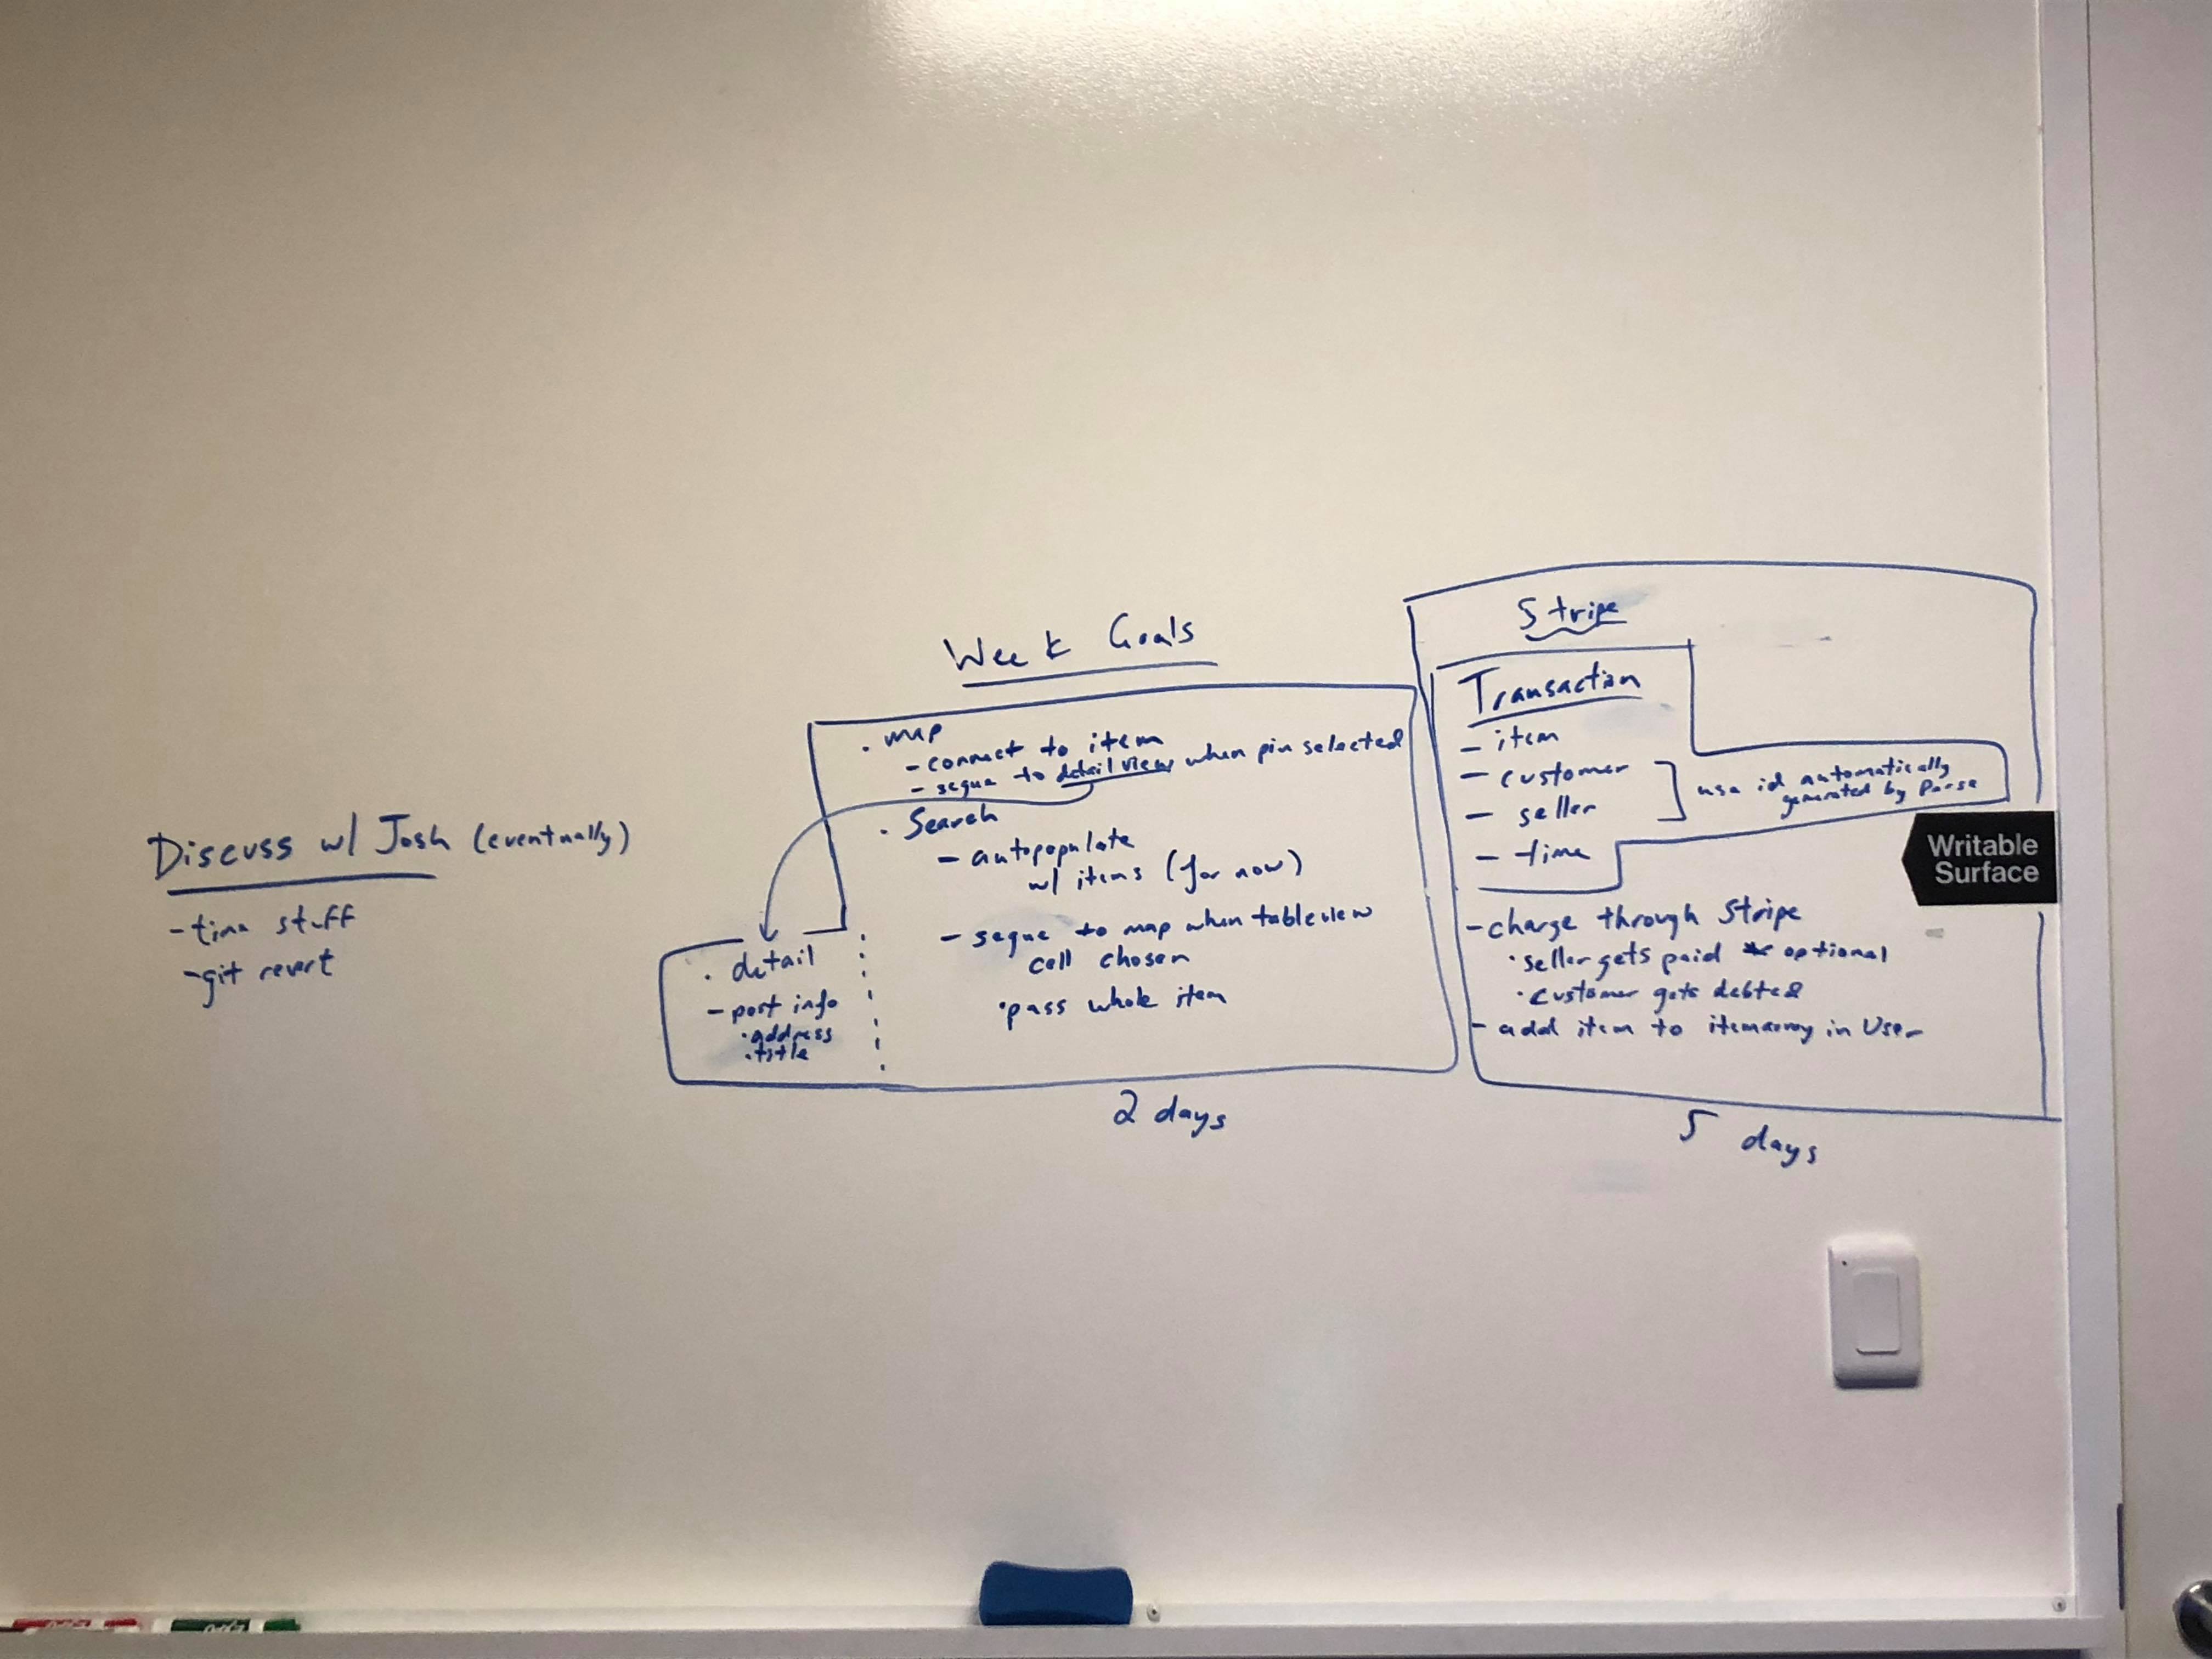 Discuss w/ Josh (eventually)
- time stuff
- git revert
Week Goals
· map
- connect to item
- segue to detail view when pin selected
· Search
- autopopulate
w/ items (for now)
- segue to map when tableview
cell chosen
· pass whole item
· detail
- post info
· address
· title
2 days
Stripe
Transaction
- item
- customer
- seller
- time
use id automatically
generated by Parse
- charge through Stripe
· seller gets paid * optional
· customer gets debted
- add item to itemarray in User
5 days
Writable
Surface